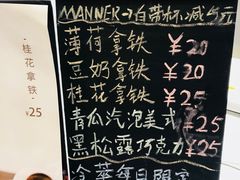 MANNER→自带杯减5元
薄荷拿铁 ¥20
豆奶拿铁 ¥20
桂花拿铁 ¥25
青瓜汽泡美式 ¥25
黑松露巧克力 ¥25
冷萃每日限定
桂花拿铁
¥25